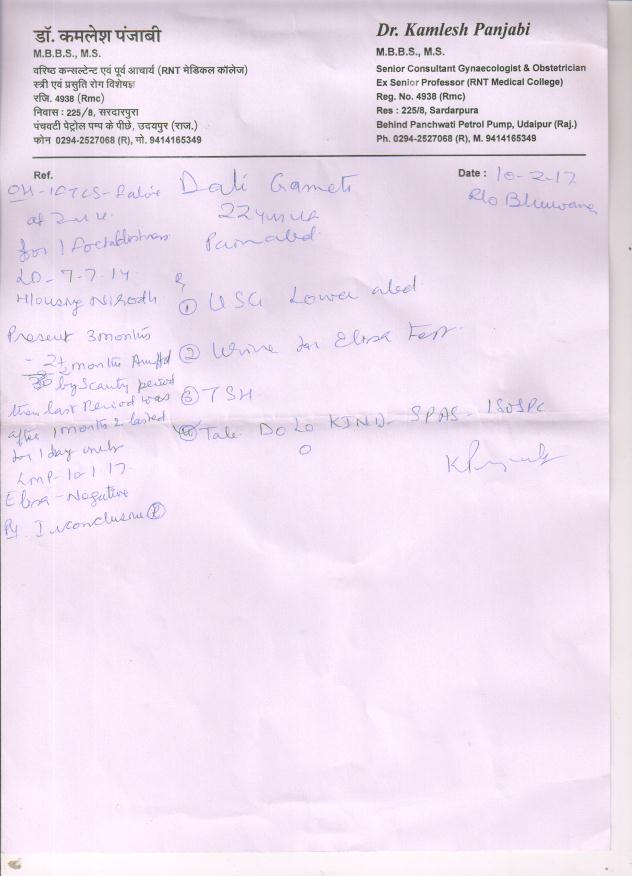 डॉ. कमलेश पंजाबी
M.B.B.S., M.S.
वरिष्ठ कन्सल्टेन्ट एवं पूर्व आचार्य (RNT मेडिकल कॉलेज)
स्त्री एवं प्रसुति रोग विशेषज्ञ
रजि. 4938 (Rmc)
निवास : 225/8, सरदारपुरा
पंचवटी पेट्रोल पम्प के पीछे, उदयपुर (राज.)
फोन 0294-2527068 (R), मो. 9414165349
Dr. Kamlesh Panjabi
M.B.B.S., M.S.
Senior Consultant Gynaecologist & Obstetrician
Ex Senior Professor (RNT Medical College)
Reg. No. 4938 (Rmc)
Res : 225/8, Sardarpura
Behind Panchwati Petrol Pump, Udaipur (Raj.)
Ph. 0294-2527068 (R), M. 9414165349
Ref.
Date : 10-2-17
R/o Bhuwana
Dali Gameti
22 years
Pain abd.
OH - 1 CTCS -
at
for
LD - 7-7-14
Nirodh
Present 3 months
- 2½ months
by scanty period
then last Period was
after 1 month 2 lasted
for 1 day only
LMP - 10-1-17
Elisa - Negative
① USG Lower abd.
② Urine for Elisa Test.
③ TSH
Tab. DOLOKIND - SPAS -